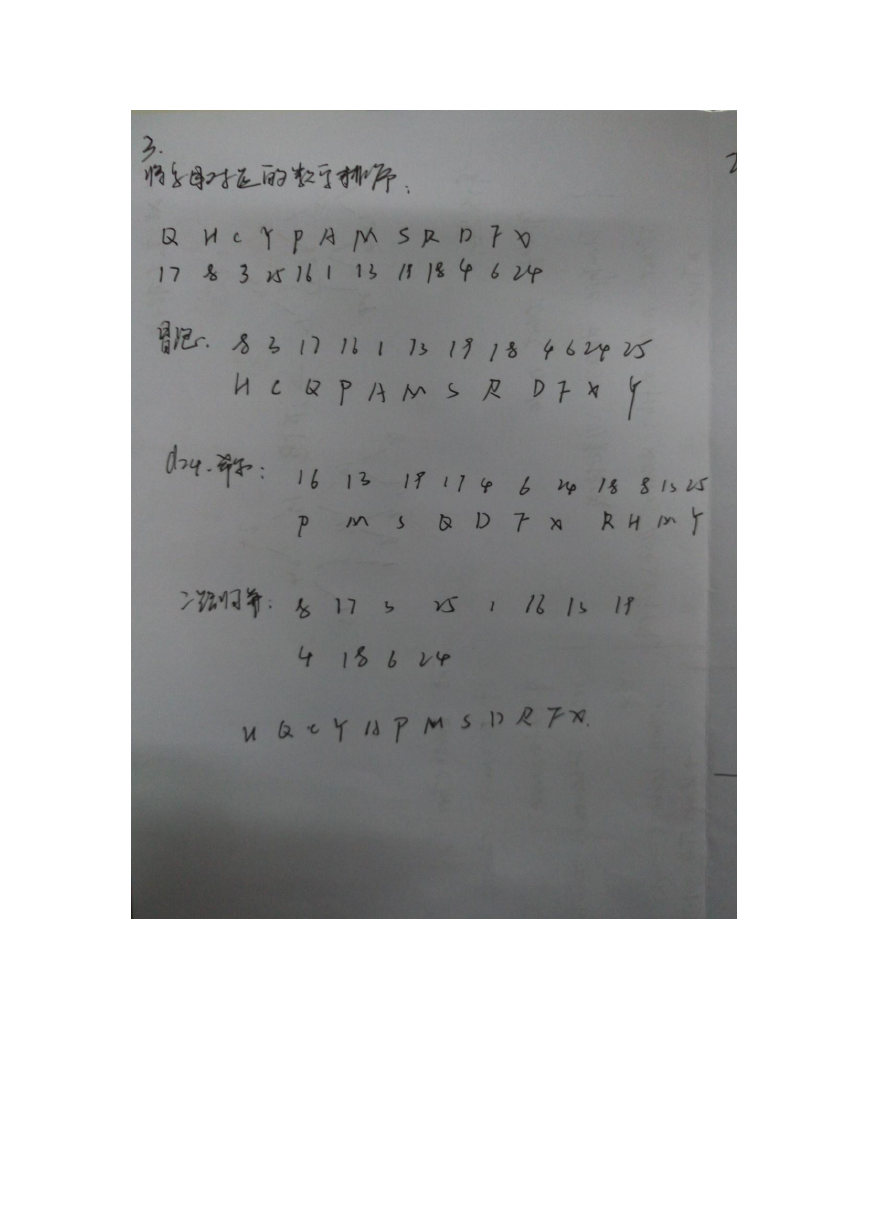 3.
将字母对应的数字排序:
Q H C Y P A M S R D F X
17 8 3 25 16 1 13 19 18 4 6 24
冒泡. 8 3 17 16 1 13 19 18 4 6 24 25
H C Q P A M S R D F X Y
d=4. 希尔: 16 13 19 17 4 6 24 18 8 13 25
P M S Q D F X R H M Y
二路归并: 8 17 3 25 1 16 13 19
4 18 6 24
H Q C Y A P M S D R F X.
2